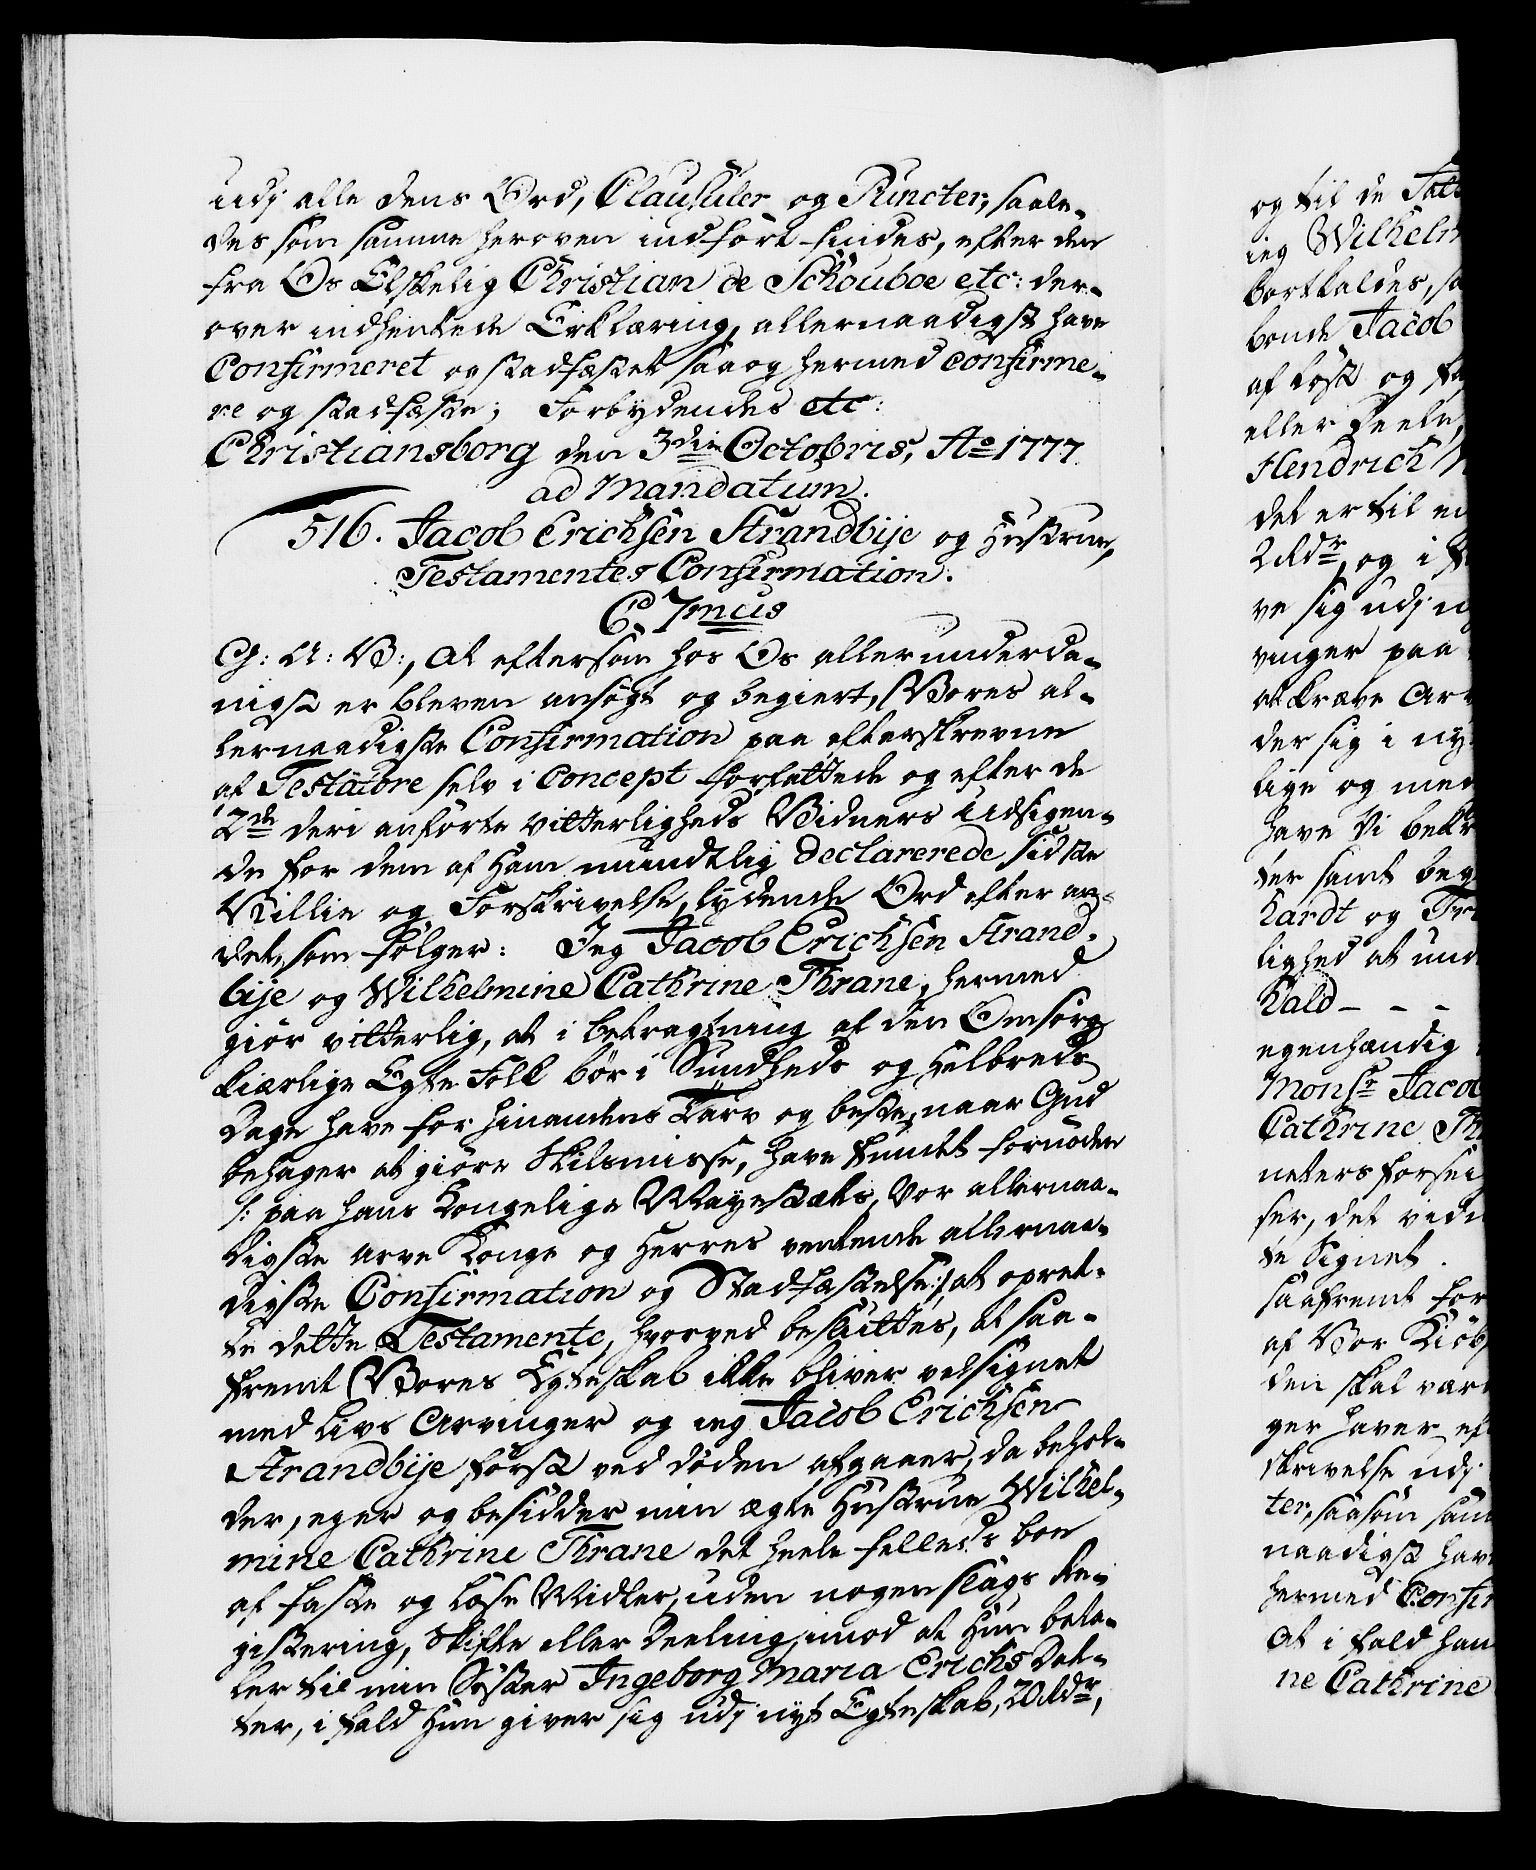 udj alle dens Ord, Clausuler og Puncter, saale-
des som samme heroven indført findes, efter den
fra Os Elskelig Christian de Schouboe etc: der-
over indhentede Erklæring, allernaadigst have
Confirmeret og stadfæstet saa og hermed confirme-
re og stadfæste; Forbydendes etc:
Christiansborg den 3die Octobris, Ao 1777
ad Mandatum.
516. Jacob Erichsen Strandbije og Hustrues,
Testamentes Confirmation.
C. 7mus
G: A: V:, at eftersom hos Os allerunderda-
nigst er bleven ansøgt og begiert, Vores al-
lernaadigste Confirmation paa efterskrevne
af Testatore selv i Concept forfattede og efter de
2de deri anførte vitterligheds Vidners Udsigen-
de for dem af Ham mundtlig declarerede sidste
Villie og Forskrivelse, lydende Ord efter an-
det, som følger: Jeg Jacob Erichsen Strand-
bije og Wilhelmine Cathrine Thrane, hermed
giør vitterlig, at i betragtning af den Omsorg
kiærlige Egte Folk bør i Sundheds og Helbreds
Dage have for hinandens Tarv og beste, naar Gud
behager at giøre Skilsmisse, have fundet fornøden
/: paa hans Kongelige Mayestæts, Vor allernaa-
digste Arve Konge og Herres ventende allernaa-
digste Confirmation og Stadfæstelse :/ at opret-
te dette Testamente, hvorved besluttes, at saa-
fremt Vores Egteskab ikke bliver velsignet
med Livs Arvinger og ieg Jacob Erichsen
Strandbije først ved døden afgaaer, da behol-
der, eger og besidder min ægte Hustrue Wilhel-
mine Cathrine Thrane det heele fælleds boe
af faste og løse Midler, uden nogen slags Re-
gistering, Skifte eller Deeling, imod at Hun beta-
ler til min Søster Ingeborg Maria Erichs Dat-
ter, i fald Hun giver sig udj nyt Egteskab, 20 Rdr,
og til de
ieg
bortkaldes,
bonde Jacob
af løst og
eller
Hendrich
det er til
2 Rdr, og i
ve sig udj
vinger paa
at kræve
der sig i
lige og med
have Vi
ter samt
og
lighed at
Kald - - -
egenhændig
Monsr
Cathrine

ser, det
te Signet.
saafremt
af Vor
den skal
ger haver
skrivelse udj
ter, saasom
naadigst
hermed
At i fald
ne Cathrine